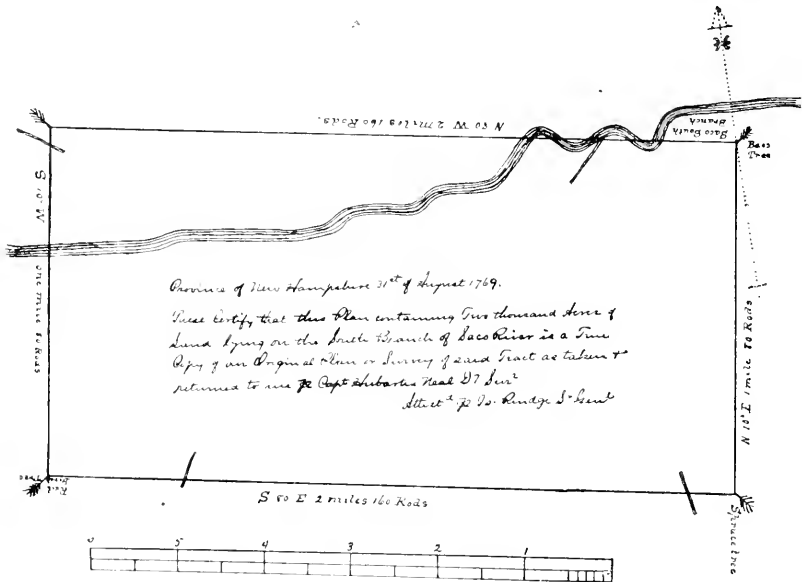 N 80 W 2 Miles 160 Rods.
Saco South
Branch
Bass
Tree
S 10° W one mile 80 Rods
Province of New Hampshire 31st of August 1769.
These Certify that this Plan containing Two thousand Acres of
Land lying on the South Branch of Saco River is a True
Copy of an Original Plan or Survey of said Tract as taken &
returned to me Capt Hubartus Neal Surr
Attest Is. Rindge Genl
N 10° E 1 mile 80 Rods
Tree
S 80 E 2 miles 160 Rods
Spruce tree
6 5 4 3 2 1